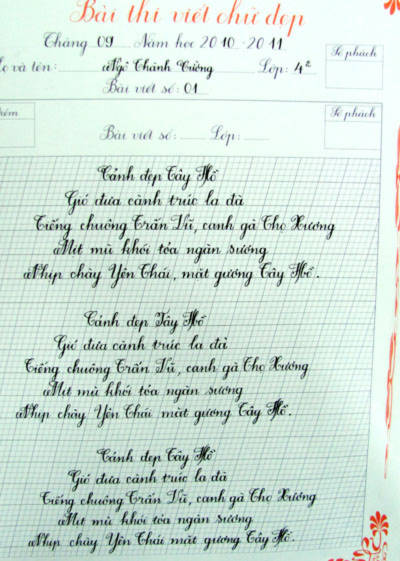 Bài thi viết chữ đẹp
Tháng 09 Năm học 2010-2011
Họ và tên: Ngô Thành Cường Lớp: 4²
Số phách
Bài viết số: 01
Số phách
Bài viết số: Lớp:
Cảnh đẹp Tây Hồ
Gió đưa cành trúc la đà
Tiếng chuông Trấn Vũ, canh gà Thọ Xương
Mịt mù khói tỏa ngàn sương
Nhịp chày Yên Thái, mặt gương Tây Hồ.
Cảnh đẹp Tây Hồ
Gió đưa cành trúc la đà
Tiếng chuông Trấn Vũ, canh gà Thọ Xương
Mịt mù khói tỏa ngàn sương
Nhịp chày Yên Thái mặt gương Tây Hồ.
Cảnh đẹp Tây Hồ
Gió đưa cành trúc la đà
Tiếng chuông Trấn Vũ, canh gà Thọ Xương
Mịt mù khói tỏa ngàn sương
Nhịp chày Yên Thái mặt gương Tây Hồ.